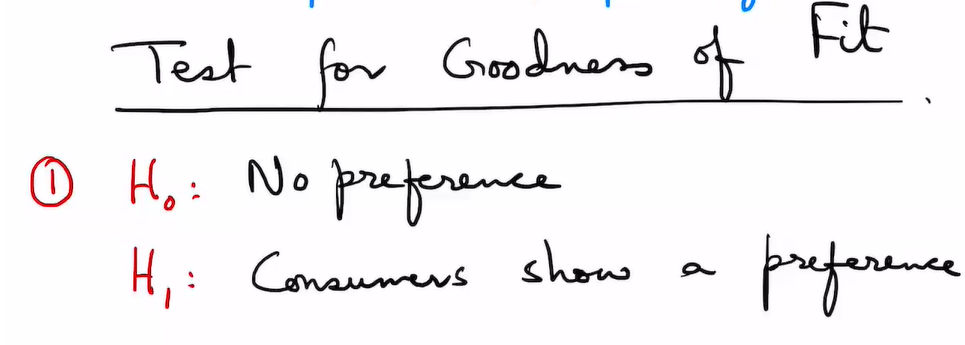 Test for Goodness of Fit
① H₀: No preference
H₁: Consumers show a preference